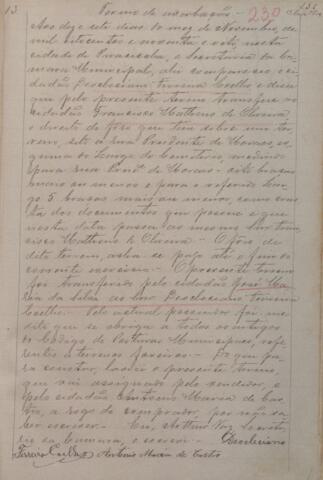 13 Termo de averbação - 230
Aos dez e sete dias do mez de Novembro, de
mil oitocentos e noventa e oito, nesta
cidade de Piracicaba, e Secretaria da Ca-
mara Municipal, ahi compareceo o ci-
dadão Deocleciano Ferreira Coelho e disse
que pelo presente termo transfere ao
cidadão Francisco Mattheus de Oliveira
o direito de fôro que tem sobre um ter-
reno, sito a rua Prudente de Moraes, es-
quina do Largo do Cemiterio, medindo
para rua Prude de Moraes - oito braças
mais ou menos e para o referido Lar-
go 5 braças mais ou menos, como cons-
ta dos documentos que possue e que
nesta data passa ao mesmo Snr. Fran-
cisco Mattheus de Oliveira - O fôro de
dito terreno, acha-se pago até o fim do
corrente exercicio. - O presente terreno
foi transferido pelo cidadão José Ma-
ria da Silva ao Snr Deocleciano Ferreira
Coelho. - Pelo actual possuidor foi me
dito que se obriga a todos os artigos
do Codigo de Posturas Municipaes, refe-
rentes a terrenos foreiros. - Do que pa-
ra constar, lavrei o presente termo,
que vai assignado pelo vendedor, e
pelo cidadão Antonio Maria de Cas-
tro, a rogo do comprador, por não sa-
ber escrever. - Eu, Arthur Vaz, Secreta-
rio da Camara, o escrevi. - Deocleciano
Ferreira Coelho Antonio Maria de Castro